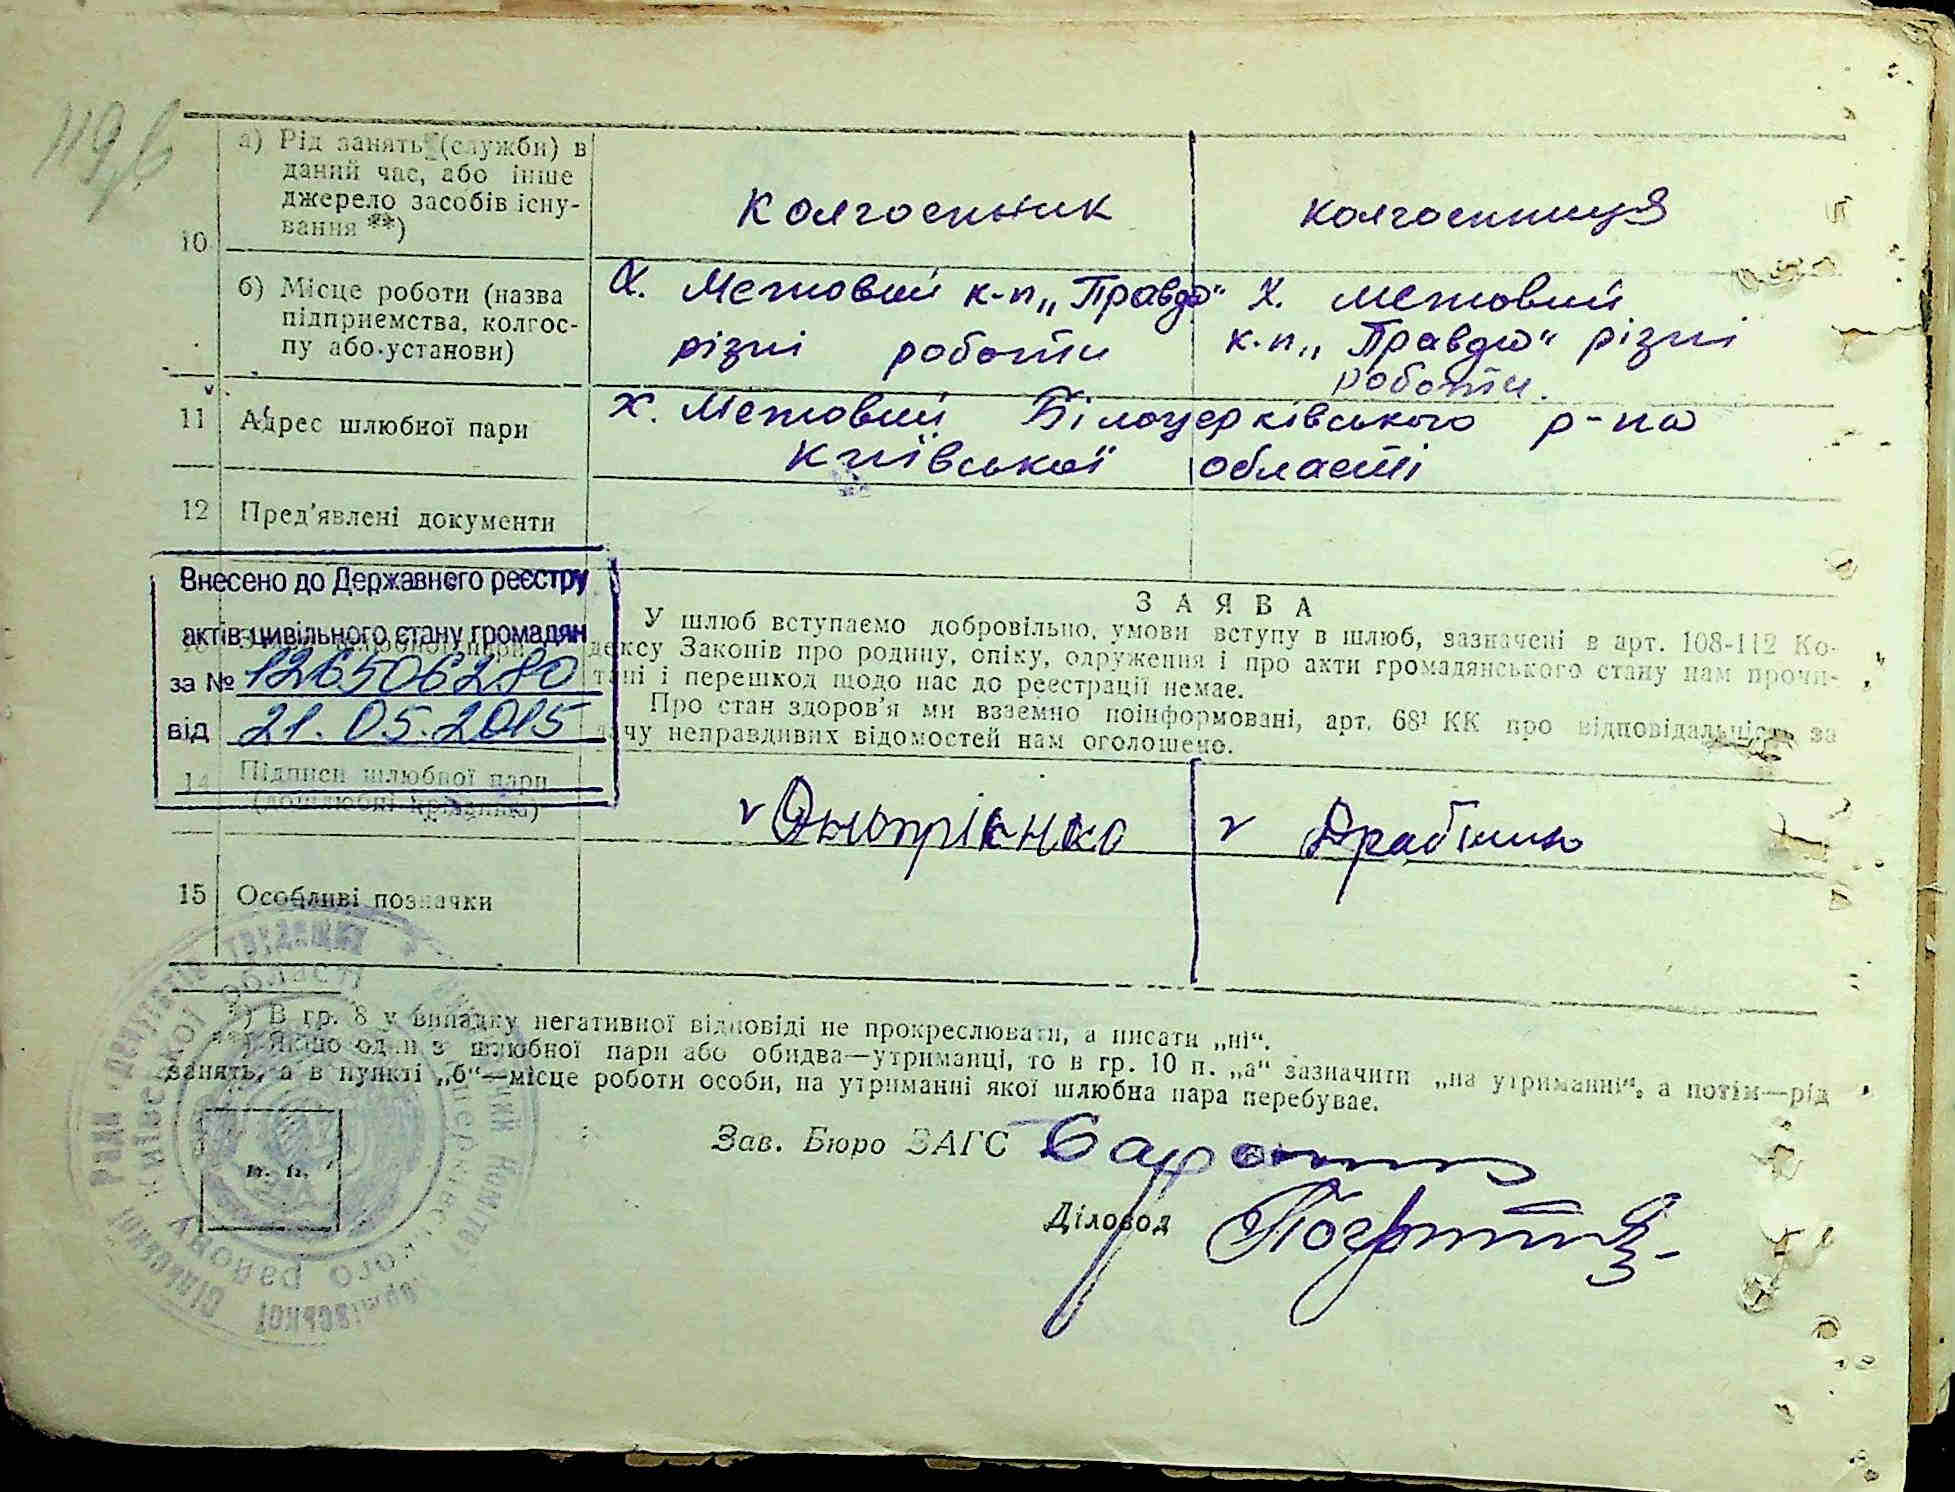 119
а) Рід занять (служби) в
даний час, або інше
джерело засобів існу-
вання **)
10
колгоспник
колгоспниця
б) Місце роботи (назва
підприємства, колгос-
пу або установи)
Х. Межовий к-п „Правда“
різні роботи
х. межовий
к-п „Правда“ різні
роботи.
11
Адрес шлюбної пари
х. Межовий Білоцерківського р-на
Київської області
12
Пред'явлені документи
Внесено до Державного реєстру
актів цивільного стану громадян
за № 126506280
від 21.05.2015
ЗАЯВА
У шлюб вступаємо добровільно, умови вступу в шлюб, зазначені в арт. 108-112 Ко-
дексу Законів про родину, опіку, одруження і про акти громадянського стану нам прочи-
тані і перешкод щодо нас до реєстрації немає.
Про стан здоров'я ми взаємно поінформовані, арт. 68¹ КК про відповідальність за
дачу неправдивих відомостей нам оголошено.
14
Підписи шлюбної пари
(дошлюбні прізвища)
15
Особливі позначки
*) В гр. 8 у випадку негативної відповіді не прокреслювати, а писати „ні“.
**) Якщо один з шлюбної пари або обидва—утриманці, то в гр. 10 п. „а“ зазначити „на утриманні“, а потім—рід
занять, а в пункті „б“—місце роботи особи, на утриманні якої шлюбна пара перебуває.
Зав. Бюро ЗАГС
Діловод
М. П.